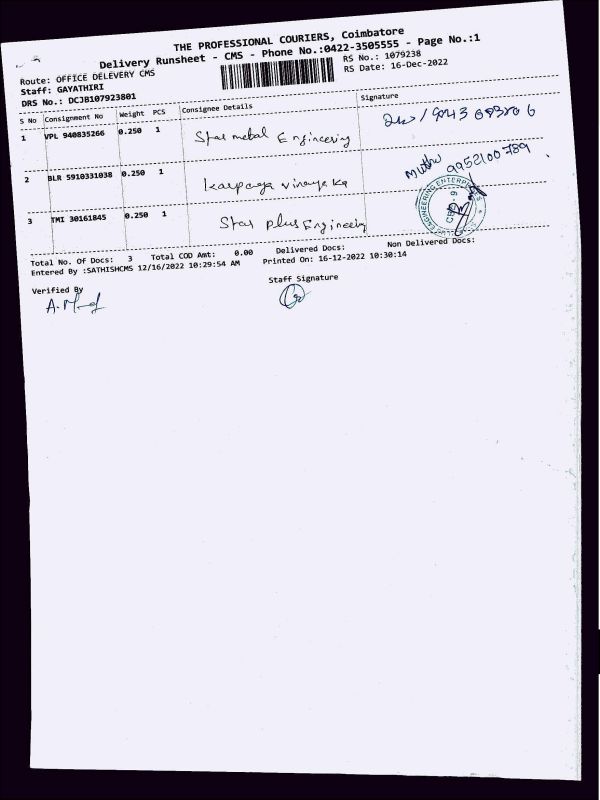 THE PROFESSIONAL COURIERS, Coimbatore
Delivery Runsheet - CMS - Phone No.:0422-3505555 - Page No.:1
Route: OFFICE DELEVERY CMS
RS No.: 1079238
Staff: GAYATHIRI
RS Date: 16-Dec-2022
DRS No.: DCJB107923801
S No Consignment No Weight PCS Consignee Details Signature
1 VPL 940835266 0.250 1 Star metal Engineering
2 BLR 5910331038 0.250 1 karpaga vinayaka Muthu 9952100789
3 TMI 30161845 0.250 1 Star plus Engineering
ENGINEERING ENTERPRISES
CBE - 9
Total No. Of Docs: 3 Total COD Amt: 0.00 Delivered Docs: Non Delivered Docs:
Entered By :SATHISHCMS 12/16/2022 10:29:54 AM Printed On: 16-12-2022 10:30:14
Verified By Staff Signature